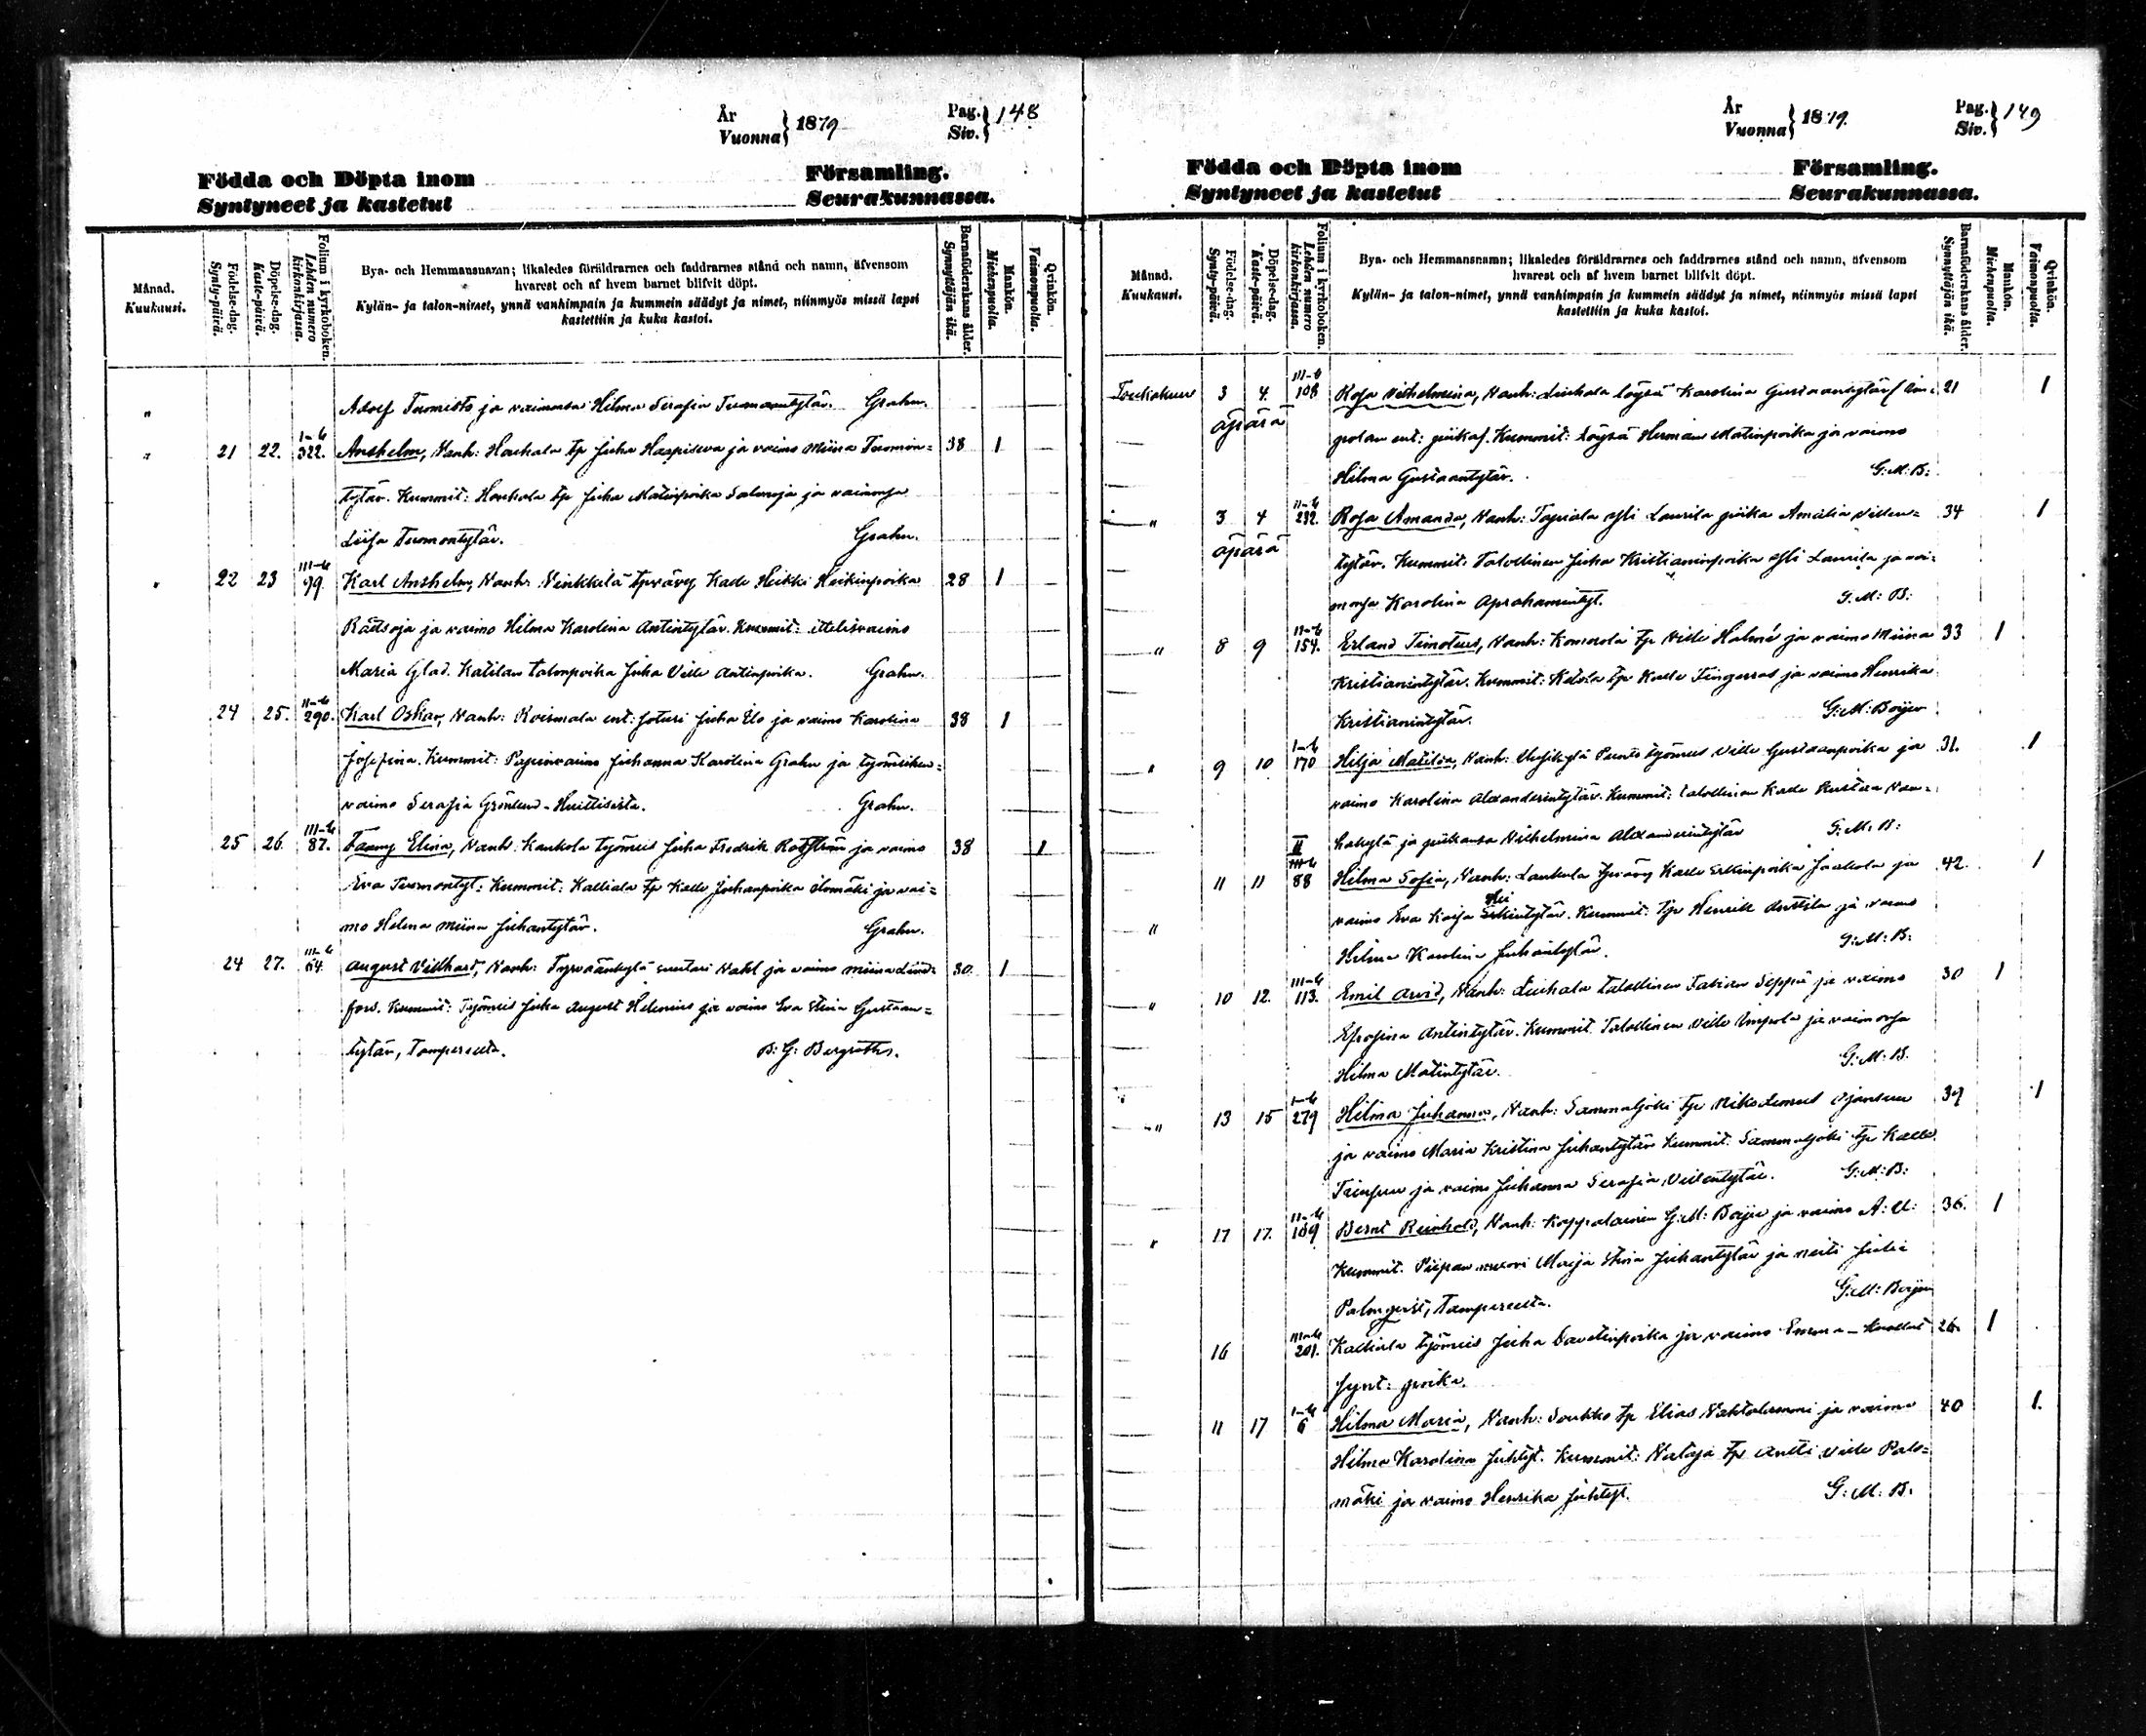 År
Vuonna } 1879
Pag.
Siv. } 148
Födda och Döpta inom Församling.
Syntyneet ja kastetut Seurakunnassa.
Månad.
Kuukausi.
Födelse-dag.
Synty-päivä.
Döpelse-dag.
Kaste-päivä.
Folium i kyrkoboken.
Lehden numero kirkonkirjassa.
Bya- och Hemmansnamn; likaledes föräldrarnes och faddrarnes stånd och namn, äfvensom
hvarest och af hvem barnet blifvit döpt.
Kylän- ja talon-nimet, ynnä vanhimpain ja kummein säädyt ja nimet, niinmyös missä lapsi
kastettiin ja kuka kastoi.
Barnaföderskans ålder.
Synnyttäjän ikä.
Mankön.
Miehenpuolia.
Qvinkön.
Vaimonpuolia.
" Adolf Tuomisto ja vaimonsa Hilma Serafia Tuomontytär. Grahn.
" 21 22. I-b 322. Anshelm, Vanh: Houhala tp Juha Haapiseva ja vaimo Miina Tuomon= 38 1
tytär. Kummit: Houhala tp Juha Matinpoika Salmoja ja vaimonsa
Liisa Tuomontytär. Grahn.
" 22 23 III-b 99. Karl Anshelm, Vanh: Vinkkilä tpvävy Kalle Heikki Heikinpoika 28 1
Rättsoja ja vaimo Hilma Karolina Antintytär. Kummit: ittelisvaimo
Maria Glad. Katilan talonpoika Juha Ville Antinpoika. Grahn.
24 25. II-b 290. Karl Oskar, Vanh: Roismala ent: soturi Juha Elo ja vaimo Karolina 38 1
Josefina. Kummit: Papinvaimo Johanna Karolina Grahn ja työmiehen=
vaimo Serafia Grönlund - Huittisista. Grahn.
25 26. III-b 87. Fanny Elina, Vanh: Kaukola työmies Juha Fredrik ja vaimo 38 1
Eva Tuomontyt: Kummit: Kalliala tp Kalle Juhanpoika ja vai=
mo Helena Miina Juhantytär. Grahn.
24 27. III-b 64. August Villhard, Vanh: Tyrväänkylä suutari Vahl ja vaimo Miina Lind= 30 1
fors. Kummit: Työmies Juha August Helenius ja vaimo Eva Stina Gustaan=
tytär, Tampereelta. B: G: Bergroth.
År
Vuonna } 1879.
Pag.
Siv. } 149
Födda och Döpta inom Församling.
Syntyneet ja kastetut Seurakunnassa.
Månad.
Kuukausi.
Födelse-dag.
Synty-päivä.
Döpelse-dag.
Kaste-päivä.
Folium i kyrkoboken.
Lehden numero kirkonkirjassa.
Bya- och Hemmansnamn; likaledes föräldrarnes och faddrarnes stånd och namn, äfvensom
hvarest och af hvem barnet blifvit döpt.
Kylän- ja talon-nimet, ynnä vanhimpain ja kummein säädyt ja nimet, niinmyös missä lapsi
kastettiin ja kuka kastoi.
Barnaföderskans ålder.
Synnyttäjän ikä.
Mankön.
Miehenpuolia.
Qvinkön.
Vaimonpuolia.
Toukokuu 3 4. III-b 108 Rosa Vilhelmina, Vanh: Liuhala löysä Karolina Gustaantytär 21 1
äpärä ent: piika. Kummit: Löysä Herman Matinpoika ja vaimo
Hilma Gustaantytär. G: M: B:
" 3 4 II-b 232. Rosa Amanda, Vanh: Tapiola Laurila piika Amalia Villen= 34 1
äpärä tytär. Kummit: Talollinen Juha Kristianinpoika Laurila ja vai=
monsa Karolina Aprahamintyt. G: M: B:
" 8 9 II-b 154. Erland Timoteus, Vanh: Komerola tp Ville Halmé ja vaimo Miina 33 1
Kristianintytär. Kummit: Ketola tp Kalle Tingerras ja vaimo Henrika
Kristianintytär. G: M: Boijer.
" 9 10 I-b 170 Hilja Matilda, Vanh: Uusikylä Punto työmies Ville Gustaanpoika ja 31. 1
vaimo Karolina Alexanderintytär. Kummit: talollinen Kalle Rustaa Van=
hakylä ja piikansa Vilhelmina Alexanderintytär G: M: B:
11 11 II 88 Hilma Sofia, Vanh: Laukula tpvävy Kalle Erkinpoika Jaakola ja 42. 1
" vaimo Eva Kaisa Kummit: tp Henrik Anttila ja vaimo
Hilma Karolina Juhantytär. G: M: B:
" 10 12. III-b 113. Emil Arvid, Vanh: Liuhala talollinen Fabian Seppä ja vaimo 30 1
Efrosina Antintytär. Kummit: Talollinen Ville Umpola ja vaimonsa
Hilma Matintytär. G: M: B.
" 13 15 I-b 279 Hilma Johanna, Vanh: Sammaljoki tp Nikodemus Ojansuu 39 1
ja vaimo Maria Kristina Juhantytär Kummit: Sammaljoki tp Kalle
ja vaimo Johanna Serafia Villentytär. G: M: B:
" 17 17. II-b 189 Bernt Reinhold, Vanh: Kappalainen G: M: Boijer ja vaimo A: U: 36. 1
Kummit: Piipan muori Maija Stina Juhantytär ja neiti Julia
Palmqvist, Tampereelta. G: M: Boijer
16 III-b 201. Kalliala työmies Juha Davidinpoika ja vaimo Emma - kuollut 26. 1
synt: poika.
11 17 I-b 6 Hilma Maria, Vanh: Soukko tp Elias Vahtolammi ja vaimo 40 1.
Hilma Karolina Juhtyt. Kummit: Nataja tp Antti Ville Palo=
mäki ja vaimo Henrika Juhtyt. G: M: B.